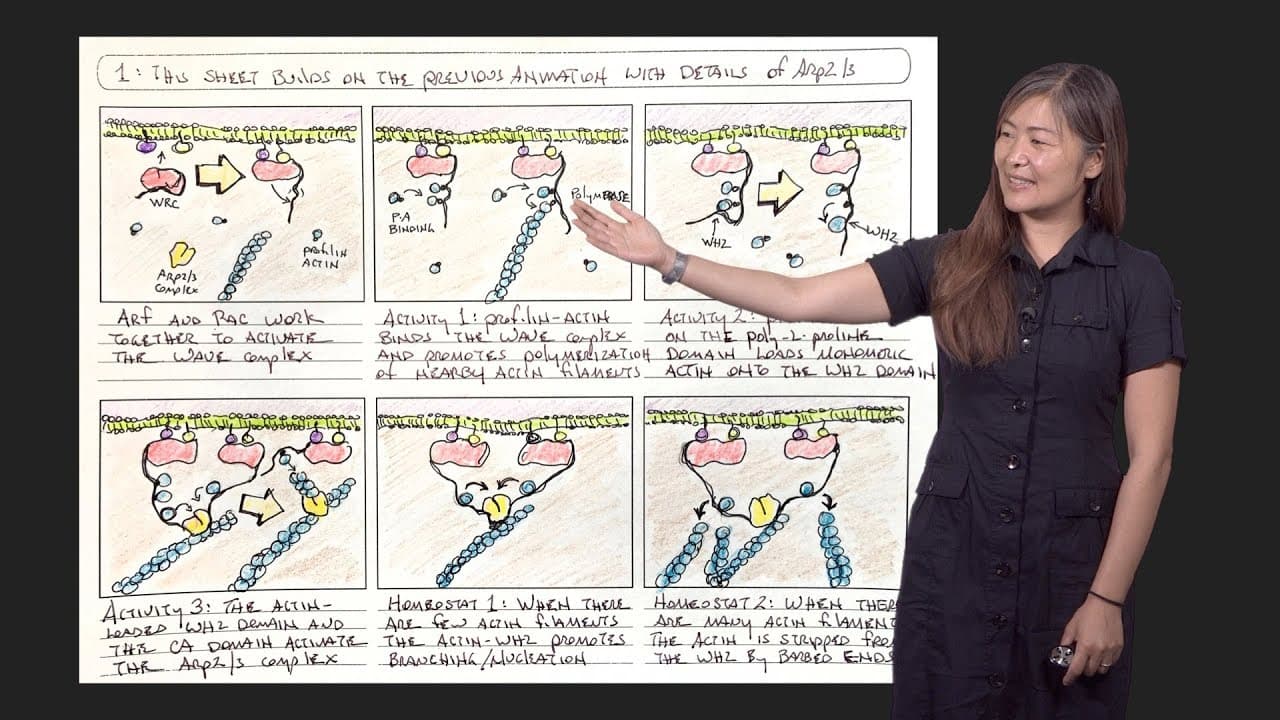 1: THIS SHEET BUILDS ON THE PREVIOUS ANIMATION WITH DETAILS of Arp2/3
WRC
Arp2/3
complex
profilin
ACTIN
P.A
BINDING
Polymerase
WH2
WH2
Arf AND RAC WORK
TOGETHER TO ACTIVATE
THE WAVE complex
Activity 1: profilin-ACTIN
BINDS THE WAVE complex
AND promotes polymerization
of NEARBY ACTIN filaments
Activity 2:
ON THE poly-L-proline
DOMAIN LOADS MONOMERIC
ACTIN ONTO THE WH2 DOMAIN
Activity 3: THE ACTIN-
LOADED WH2 DOMAIN AND
THE CA DOMAIN ACTIVATE
THE Arp2/3 complex
HOMEOSTAT 1: WHEN THERE
ARE few ACTIN filaments
THE ACTIN-WH2 promotes
BRANCHING/NUCLEATION
HOMEOSTAT 2: WHEN THER
ARE MANY ACTIN filament
THE ACTIN is STRIPPED fro
THE WH2 BY BARBED ENDS